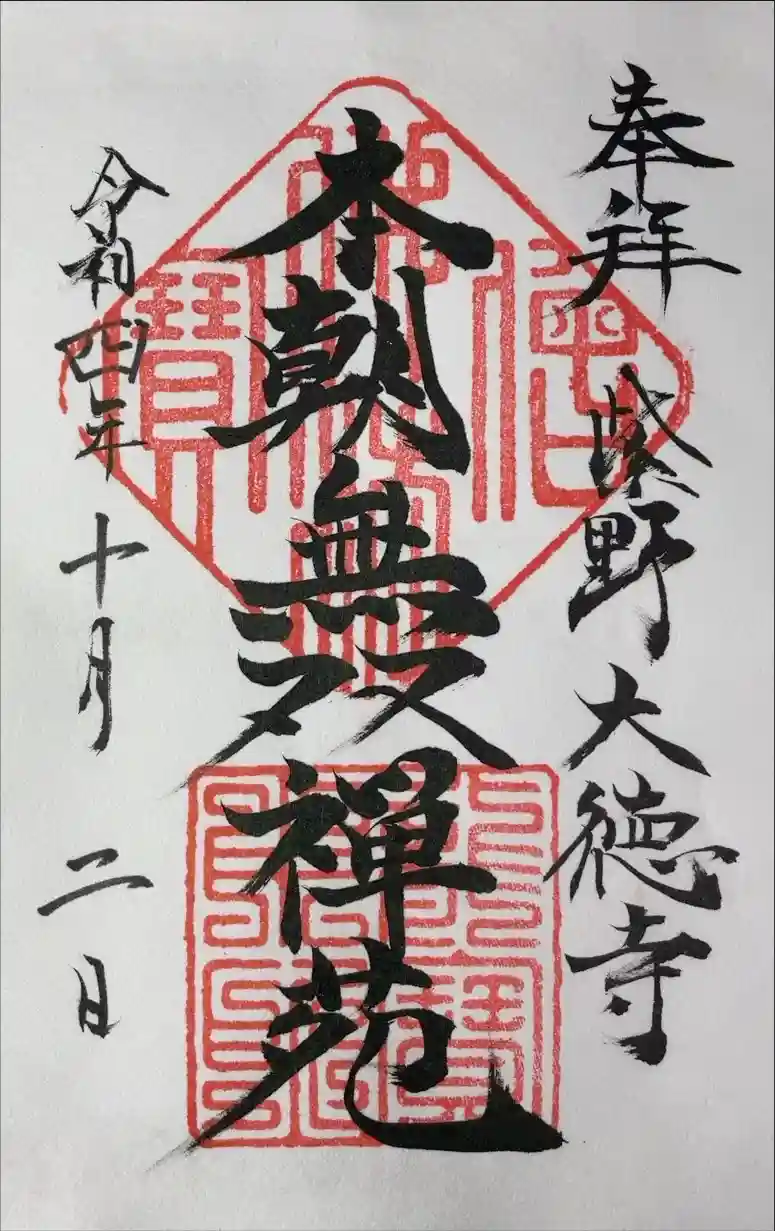 奉拝 紫野 大徳寺
本朝無双禅苑
令和四年 十月 二日
佛法僧寶